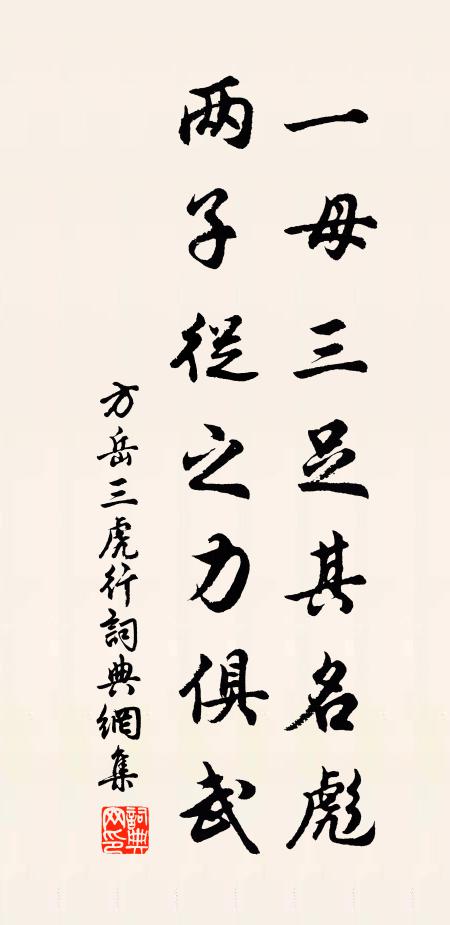 一母三足其名彪
两子從之力俱武
方岳三虎行詞典網集
詞典网印